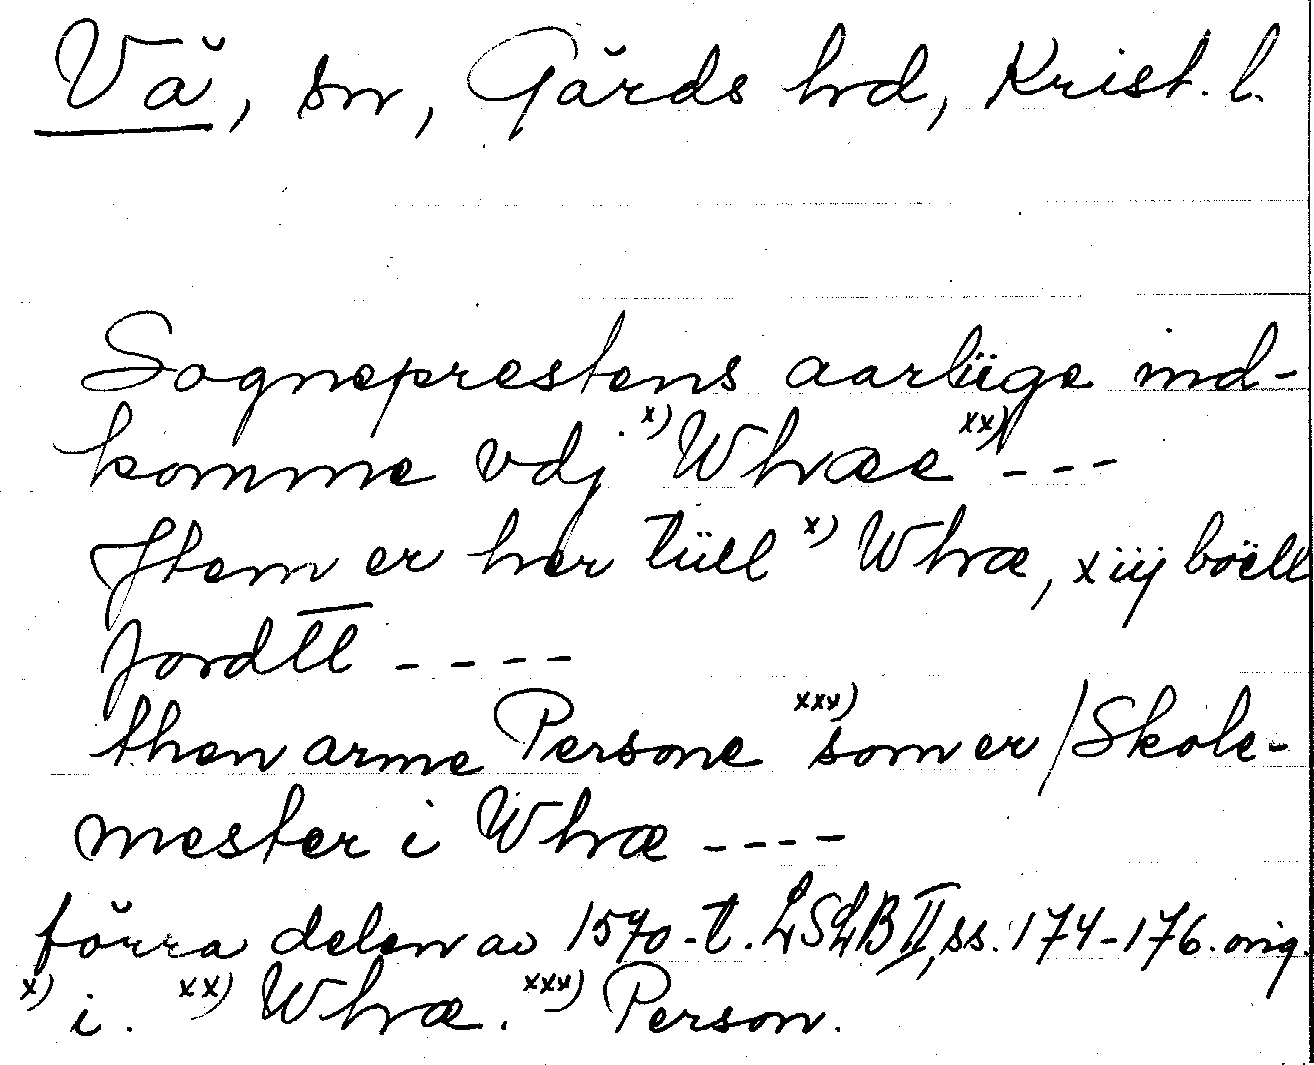 Vå, sn, Gärds hd, Krist. l.
Sogneprestens aarlüge ind-
komme vdj x) Whræe xx) - - -
Jtem er her tüll x) Whræ, xiij böell
jordtt - - - -
then arme Persone xxx) som er / Skole-
mester i Whræ - - - -
förra delen av 1570-t. LSLB II, ss. 174-176. orig.
x) i. xx) Whræ. xxx) Person.